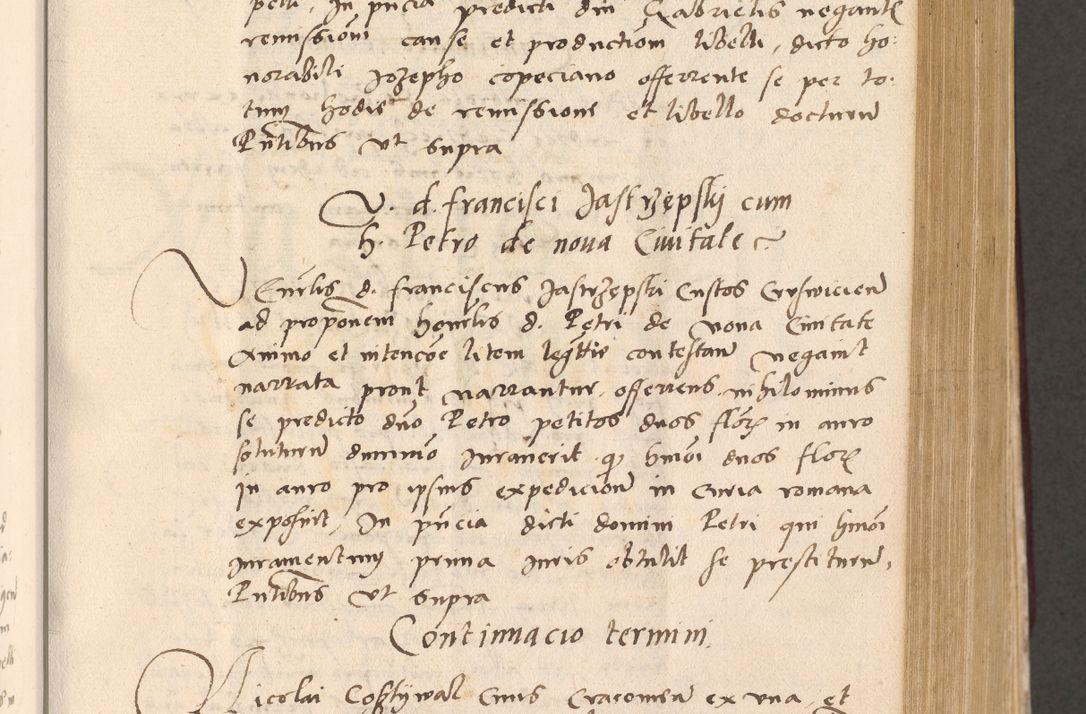 petii, In pñcia predicti dni Gabrielis negantis
remissionem cause et productiom libelli, dicto ho:
norabili Jozepho copeciano offerrente se per to:
tum hodie de remissione et libello docturum
Pñtibus ut supra
V. d. francisci Jastrzępskj cum
h. Petro de nova Civitate
VEnerlis d. franciscus Jastrzępski Custos Cruswicien
ad proponem honorlis d. Petri de nova Civitate
animo et intencõe litem legittie contestan negavit
narrata pront narrantur, offerens nihilominus
se predicto dño Petro petitos duos florẽ in auro
soluturum dummõ Juraverit q hmõi duos florẽ
in auro pro ipsius expedicione in Curia romana
exposuit, In pñcia dicti domini Petri qui hmõi
Juramentum prima Juris obtulit se prestiturum,
Pñtibus ut supra
Continuacio termini
Nicolai Costywal Civis Cracovien ex una, et